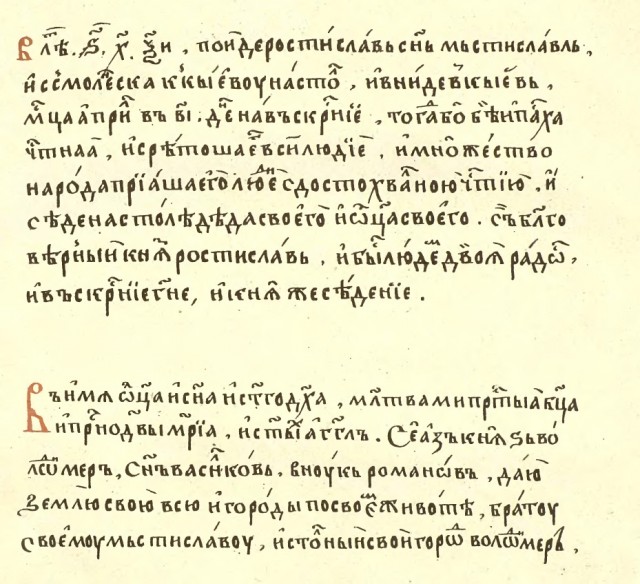 В лѣ҃т. ѕ҃. х҃. ѯ҃и , поидеростиславьсн҃ъмьстиславль ,
ѝссмоле́скаккы́евоунасто́л , ѝвни́девкы́евь ,
мц҃а апри́л въ в҃і . дн҃ь на въскрн҃іе , тогда́ бо̀ бѣ̀ и па́сха
чт҃наа̀ , ѝсрѣ́тошаѐго всѝ лю́дїе , ѝмно́жество
наро́да прїа́ша ѐго̀ лю́дїе с досто хва́лною чт҃їю . ѝ
сѣ́де на столѣ̀ дѣ́да своего̀ ѝ ѿц҃а своего̀ . съ̀ бл҃го
вѣ́рныи кн҃ѕ ростиславь , ѝ бы́с лю́дем двоꙗ̀ ра́дос ,
ѝ въскрн҃іе гн҃е , ѝ кнѧ́же сѣ́денїе .
Въ и́мѧ ѿц҃а ѝ сн҃а ѝ ст҃го дх҃а , мл҃твами прч҃тыа̀ бц҃а
ѝ прн҃одв҃ы мр҃їа , ѝ ст҃ы́х а́гг҃лъ . Сѐ а́зъ кнѧ̑ѕь во
лѡди́меръ , сн҃ъ васи́лковь , вноукь рома́новъ , даю̀
землю̀ свою̀ всю̀ ѝ го́роды по свое́м животѣ̀ , бра́тоу
своемоу мьстиславоу , ѝ сто́лныи свои го́род волѡди́меръ ,